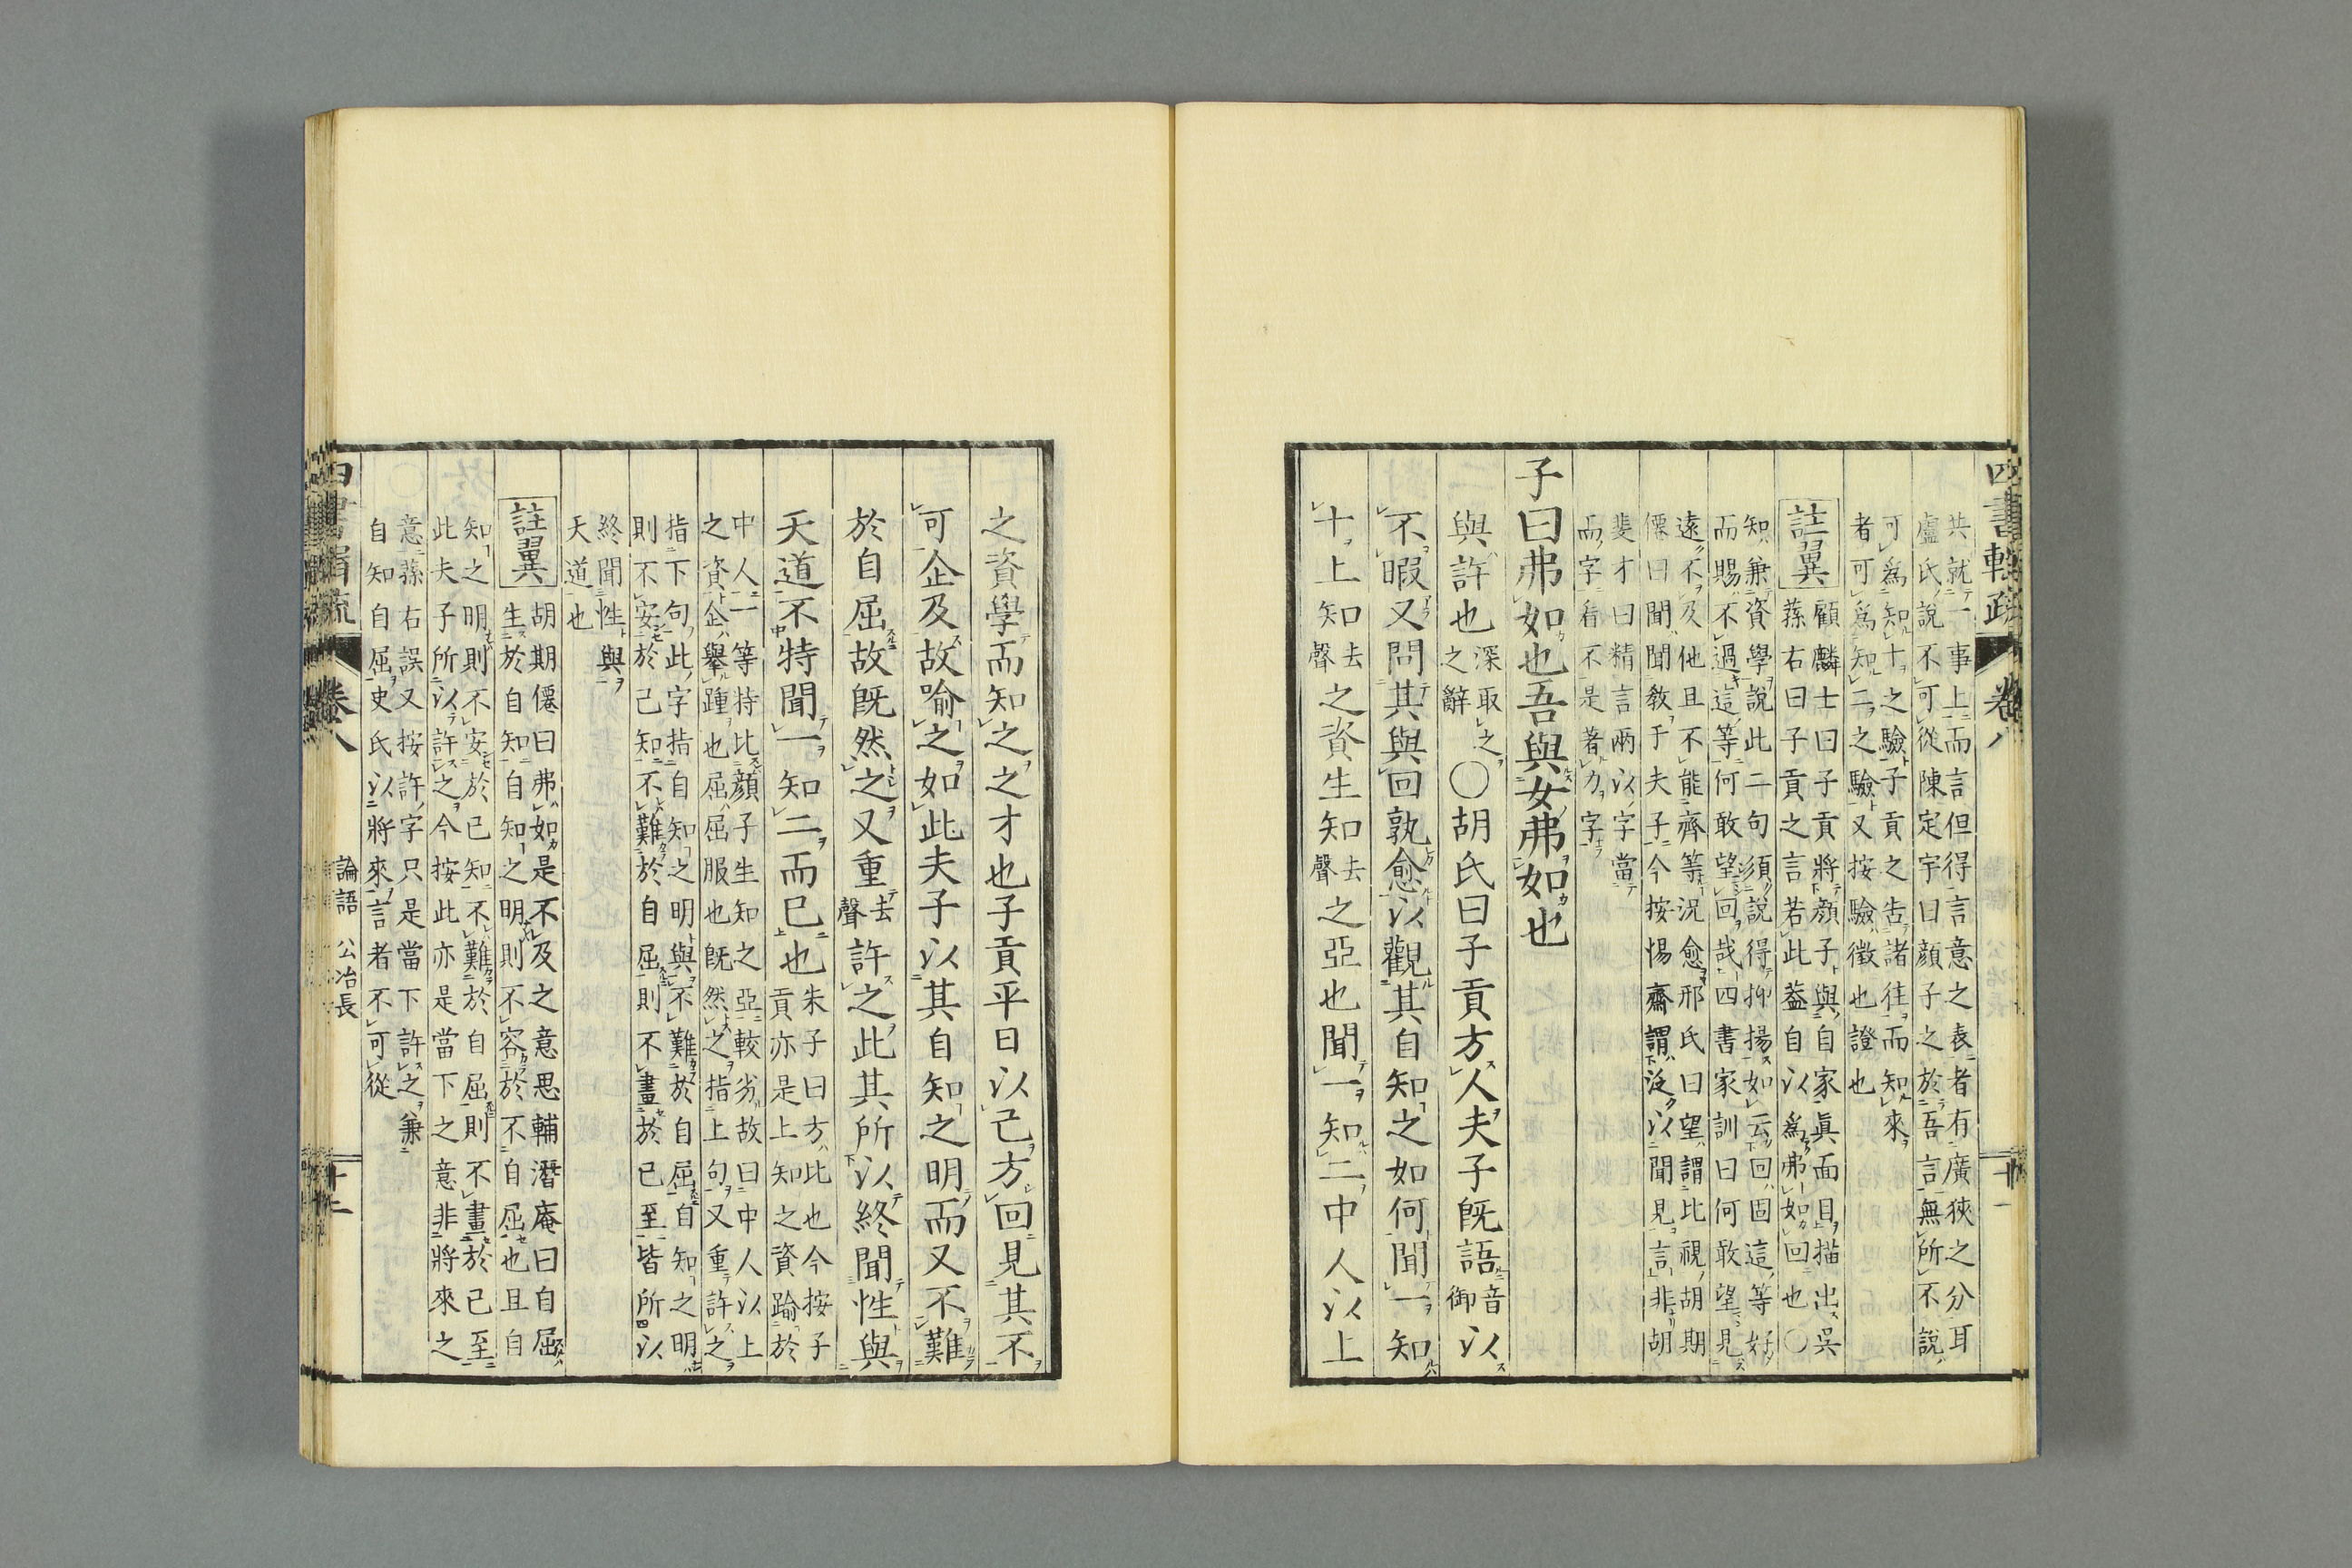 四書輯疏 卷八 十一
共就一事上而言但得言意之表者有廣狹之分耳
盧氏說不可從陳定宇曰顔子之於吾言無所不說
可爲知十之驗子貢之告諸往而知來
者可爲知二之驗又按驗徵也證也
註翼
顧麟士曰子貢將顔子與自家眞面目描出吳
蓀右曰子貢之言若此葢自以爲弗如回也〇
知兼資學說此二句須說得抑揚如云回固這等好
而賜不過這等何敢望回哉四書家訓曰何敢望見
遠不及他且不能齊等況愈邢氏曰望謂比視胡期
僊曰聞聞敎于夫子今按惕齋謂泛以聞見言非胡
斐才曰精言兩以字當
而字看不是著力字
子曰弗如也吾與女弗如也
與許也
深取之
之辭
〇胡氏曰子貢方人夫子既語
音
御
以
不暇又問其與回孰愈以觀其自知之如何聞一知
十上知
去
聲
之資生知
去
聲
之亞也聞一知二中人以上
之資學而知之之才也子貢平日以己方回見其不
可企及故喻之如此夫子以其自知之明而又不難
於自屈故既然之又重
去
聲
許之此其所以終聞性與
天道不特聞一知二而已也
朱子曰方比也今按子
貢亦是上知之資踰於
中人一等特比顔子生知之亞較劣故曰中人以上
之資企舉踵也屈屈服也既然之指上句又重許之
指下句此字指自知之明與不難於自屈自知之明
則不安於己知不難於自屈則不畫於已至皆所以
終聞性與
天道也
註翼
胡期僊曰弗如是不及之意思輔潛庵曰自屈
生於自知自知之明則不容於不自屈也且自
知之明則不安於已知不難於自屈則不畫於已至
此夫子所以許之今按此亦是當下之意非將來之
意蓀右誤又按許字只是當下許之兼
自知自屈史氏以將來言者不可從
四書輯疏 卷八 論語 公冶長 十二